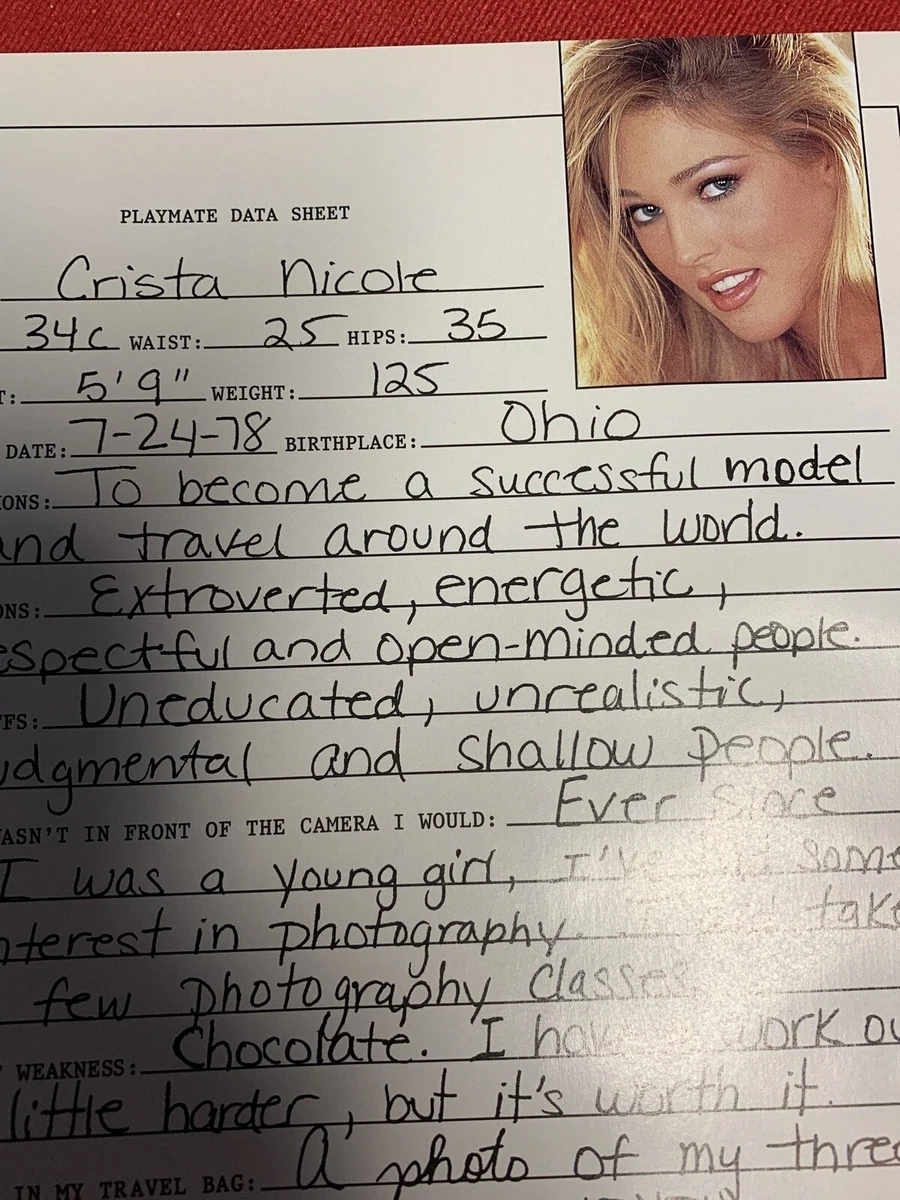 PLAYMATE DATA SHEET
Crista Nicole
34C WAIST: 25 HIPS: 35
T: 5'9" WEIGHT: 125
DATE: 7-24-78 BIRTHPLACE: Ohio
IONS: To become a successful model
and travel around the world.
ONS: Extroverted, energetic,
espectful and open-minded people.
FFS: Uneducated, unrealistic,
udgmental and shallow people.
ASN'T IN FRONT OF THE CAMERA I WOULD: Ever since
I was a young girl, I've had some
nterest in photography. take
few photography classes
WEAKNESS: Chocolate. I have work ou
little harder, but it's worth it.
IN MY TRAVEL BAG: A photo of my three